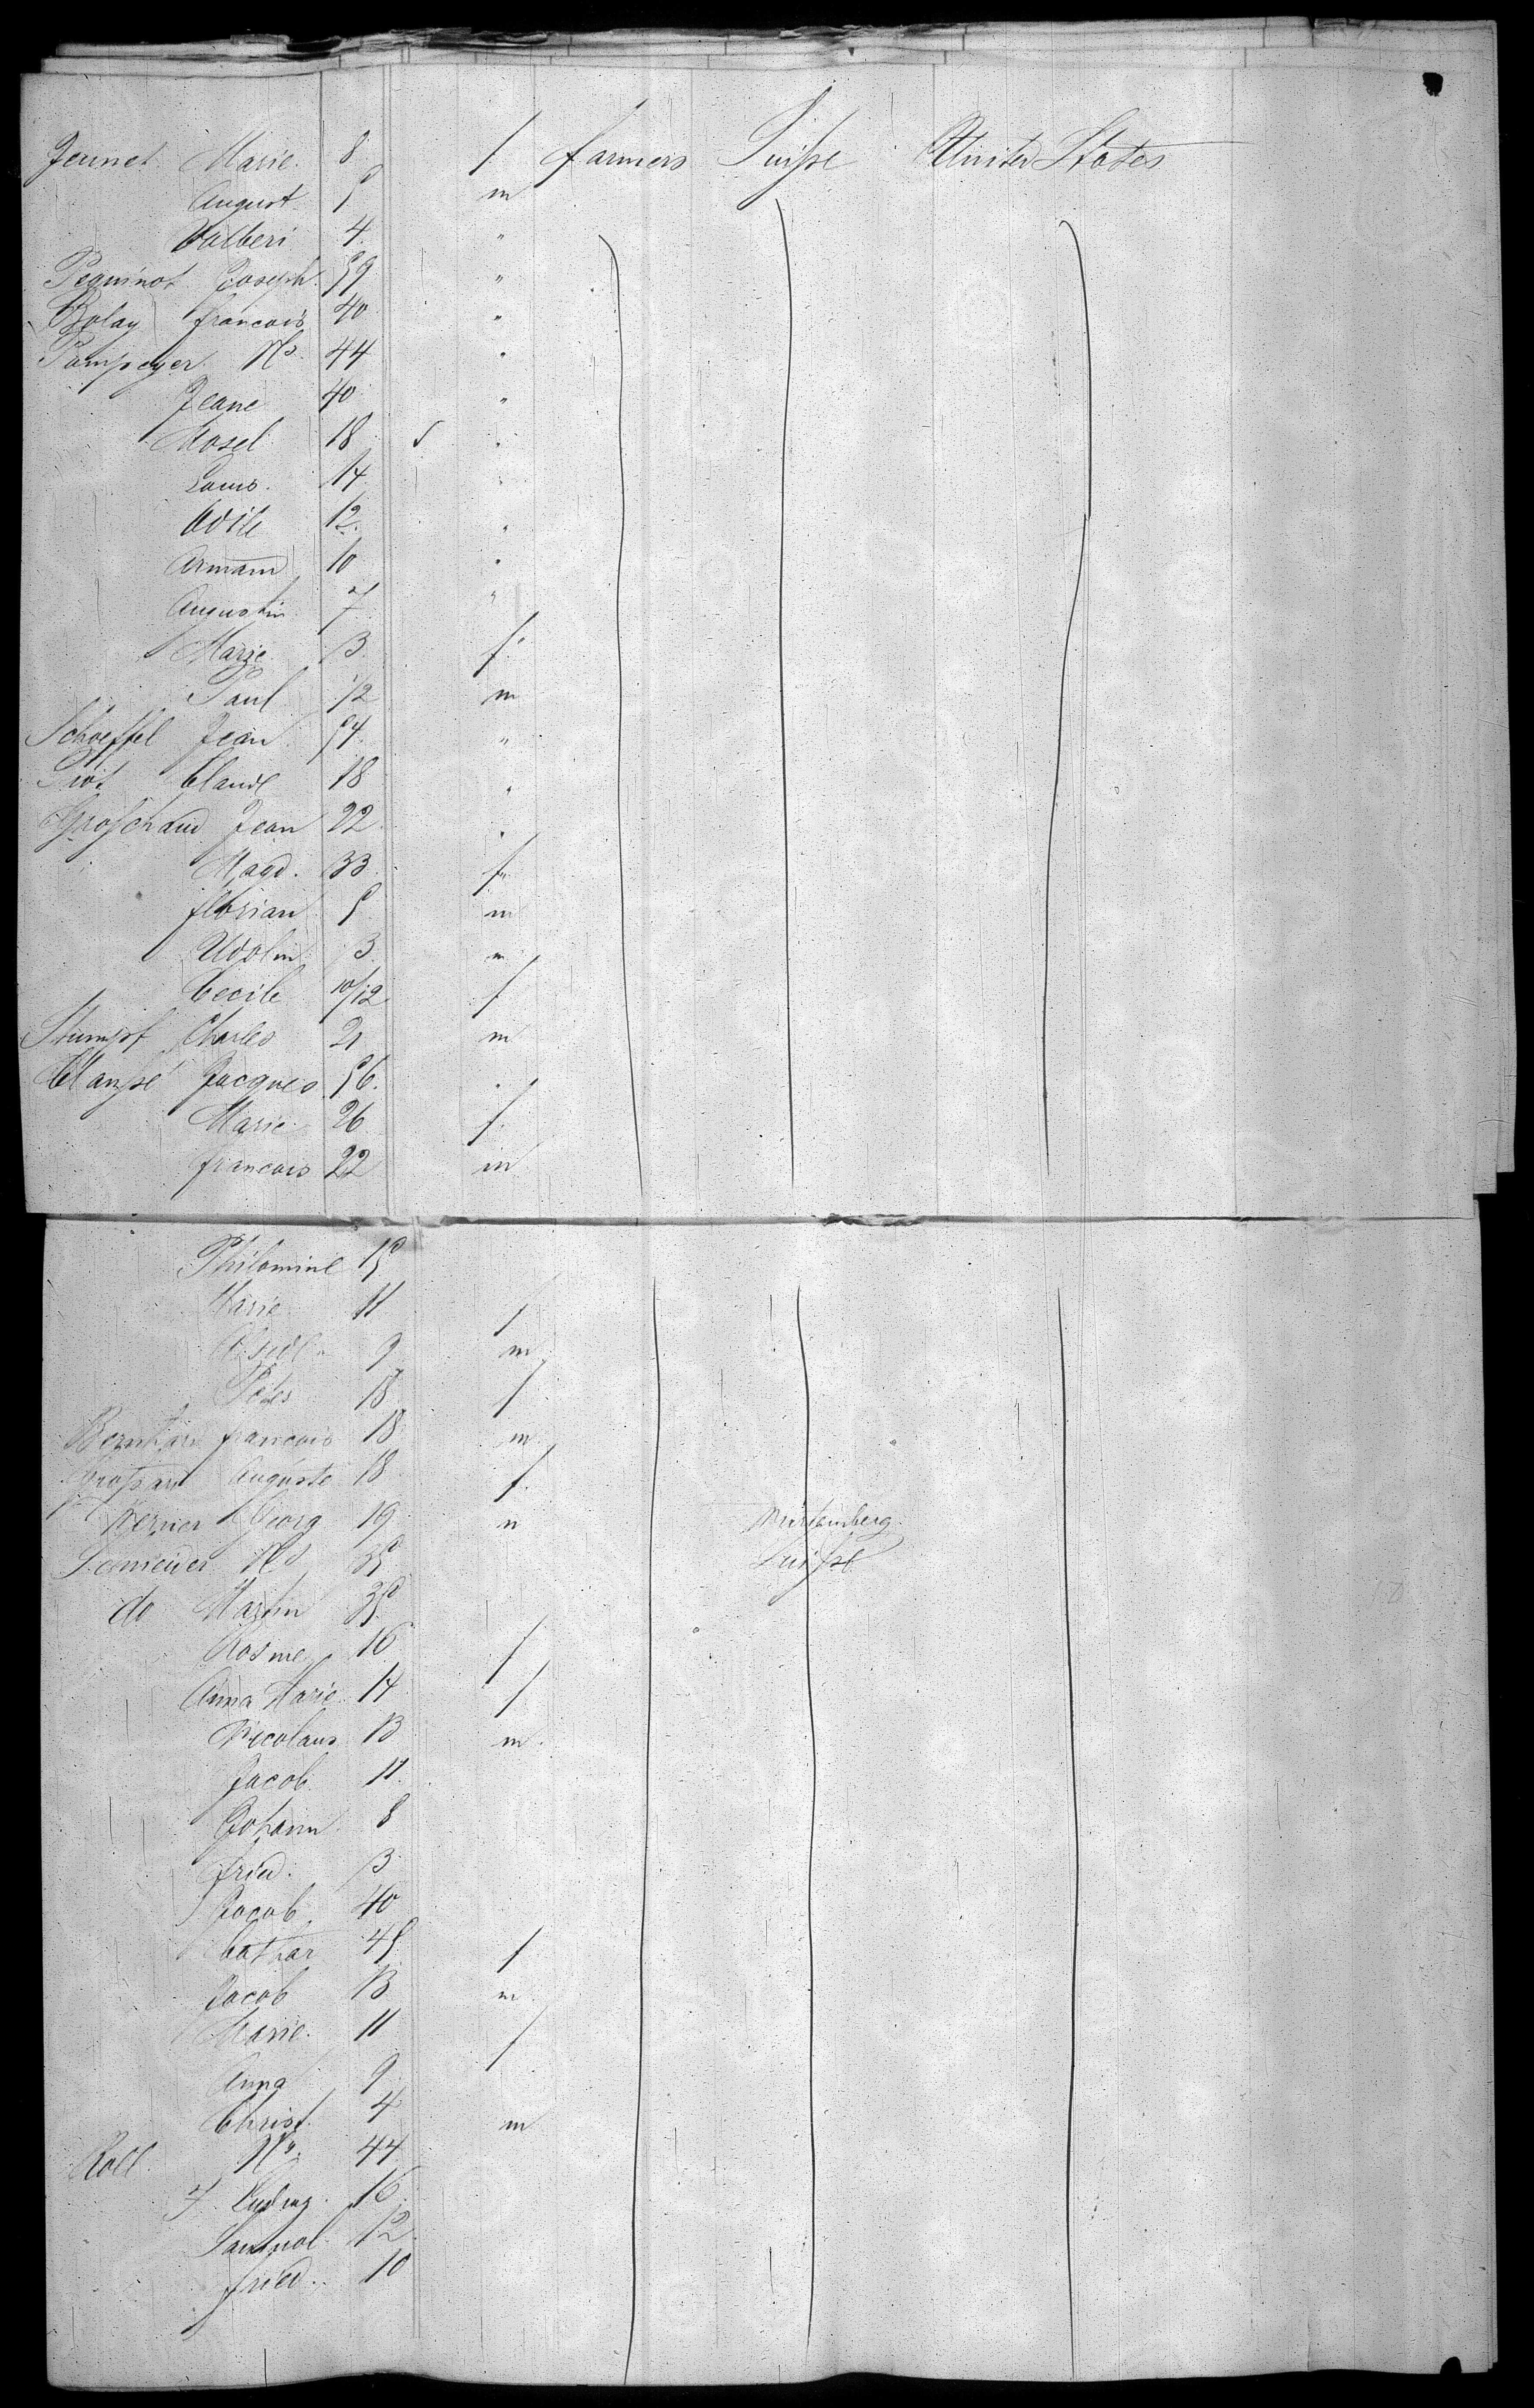 Jeunet Marie. 8 f farmers Suisse United States
August. 5 m
Valberi 4. "
Pequinot Joseph. 59 "
Bolay francois 40 "
Pampeyer Ns. 44 "
Jeane 40 "
Mosel 18 "
Louis. 14 "
Odile 12. "
Armand 10 "
Augustin 7 "
Marie 3. f.
Paul 1/2 m
Schoeffel Jean 54. "
Piot Claude 18 "
Groschaud Jean 22. "
Magd. 33 f.
florian 5 m
Udolin 3 m
Cecile 10/12 f
Stumpf Charles 21 m
Clausé Jacques 56. "
Marie. 26 f.
francois 22 m
Philomine 15
Marie 11 f
9 m
18 f
Bernhard francois 18 m
Auguste 18 f.
Werner Georg 19 m Würtemberg.
Ns 35 Suisse
do Martin 35
Rosine 16 f
Anna Marie 14 f
Nicolaus 13 m.
Jacob. 11.
Johann. 8
fried. 3
Jacob 40
Cathar 45 f
Jacob 13 m.
Marie. 11 f
Anna 9
Christ. 4 m
Roll. Ns. 44
Ludwg. 16
Samuel. 12.
fried.. 10